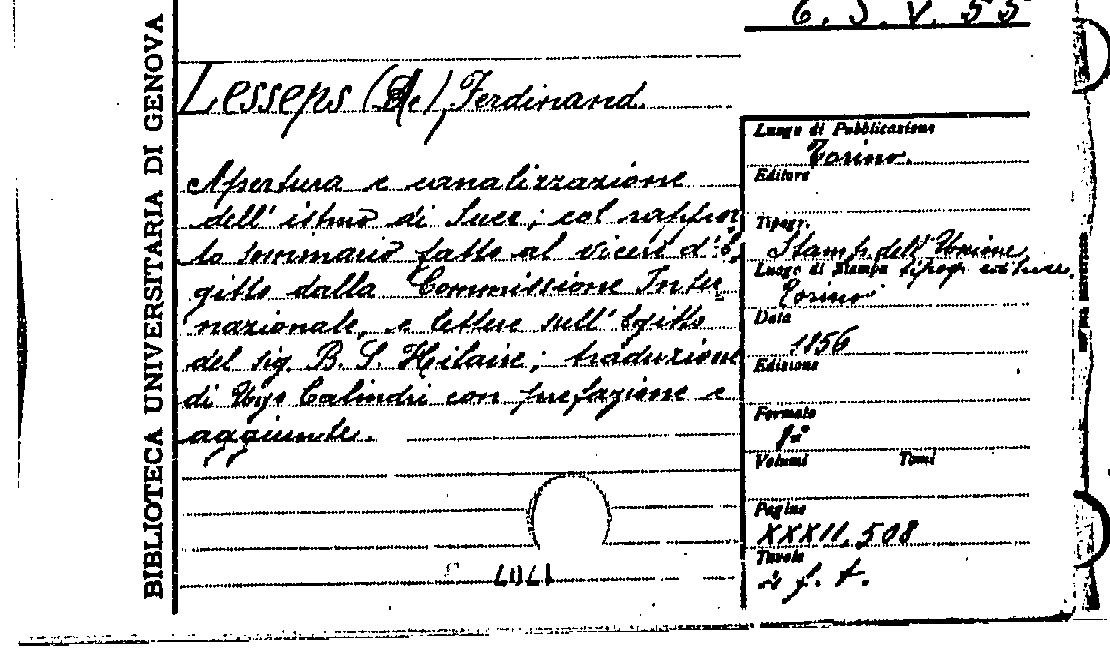 6. J. V. 55
BIBLIOTECA UNIVERSITARIA DI GENOVA
Lesseps (De), Ferdinand.
Apertura e canalizzazione
dell' istmo di Suez; col rappor
to sommario fatto al vicerè d' E
gitto dalla Commissione Inter
nazionale, e lettere sull' Egitto
del sig. B. S. Hilaire; traduzione
di Ugo Calindri con prefazione e
aggiunte.
Luogo di Pubblicazione
Torino.
Editore
Tipogr.
Stamp. dell' Unione
Luogo di Stampa tipogr. editrice
Torino
Data
1856
Edizione
Formato
8°
Volumi Tomi
Pagine
XXXII, 508
Tavole
2 f. t.